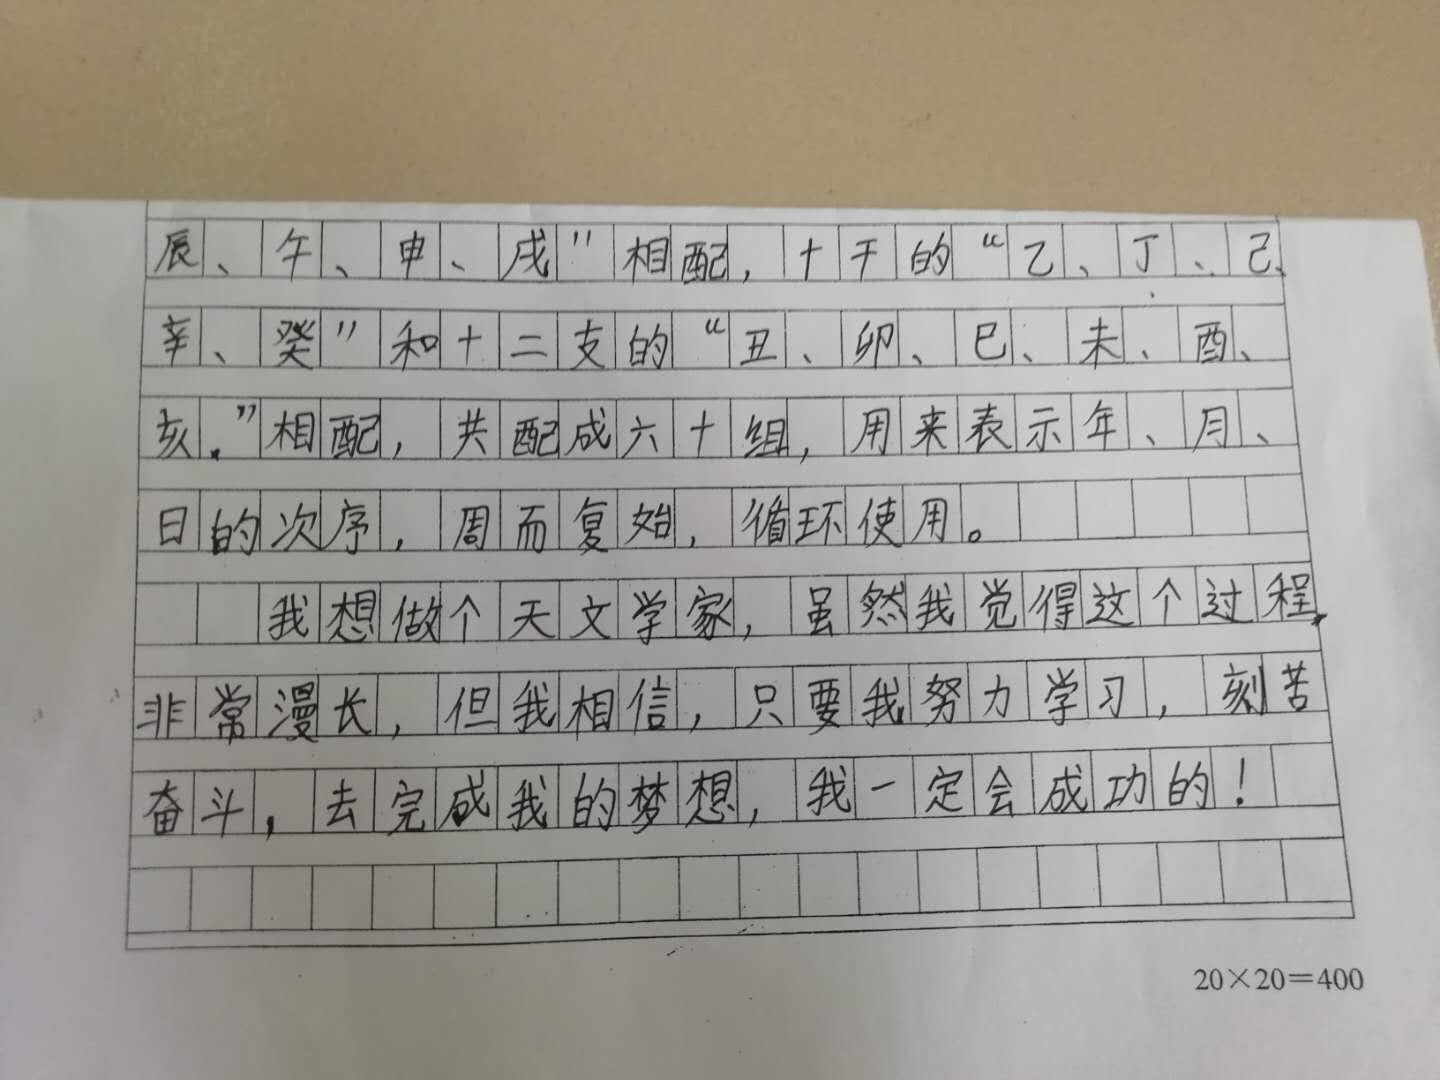 辰、午、申、戌”相配，十干的“乙、丁、己、
辛、癸”和十二支的“丑、卯、巳、未、酉、
亥.”相配，共配成六十组，用来表示年、月、
日的次序，周而复始，循环使用。
我想做个天文学家，虽然我觉得这个过程
非常漫长，但我相信，只要我努力学习，刻苦
奋斗，去完成我的梦想，我一定会成功的！
20×20=400